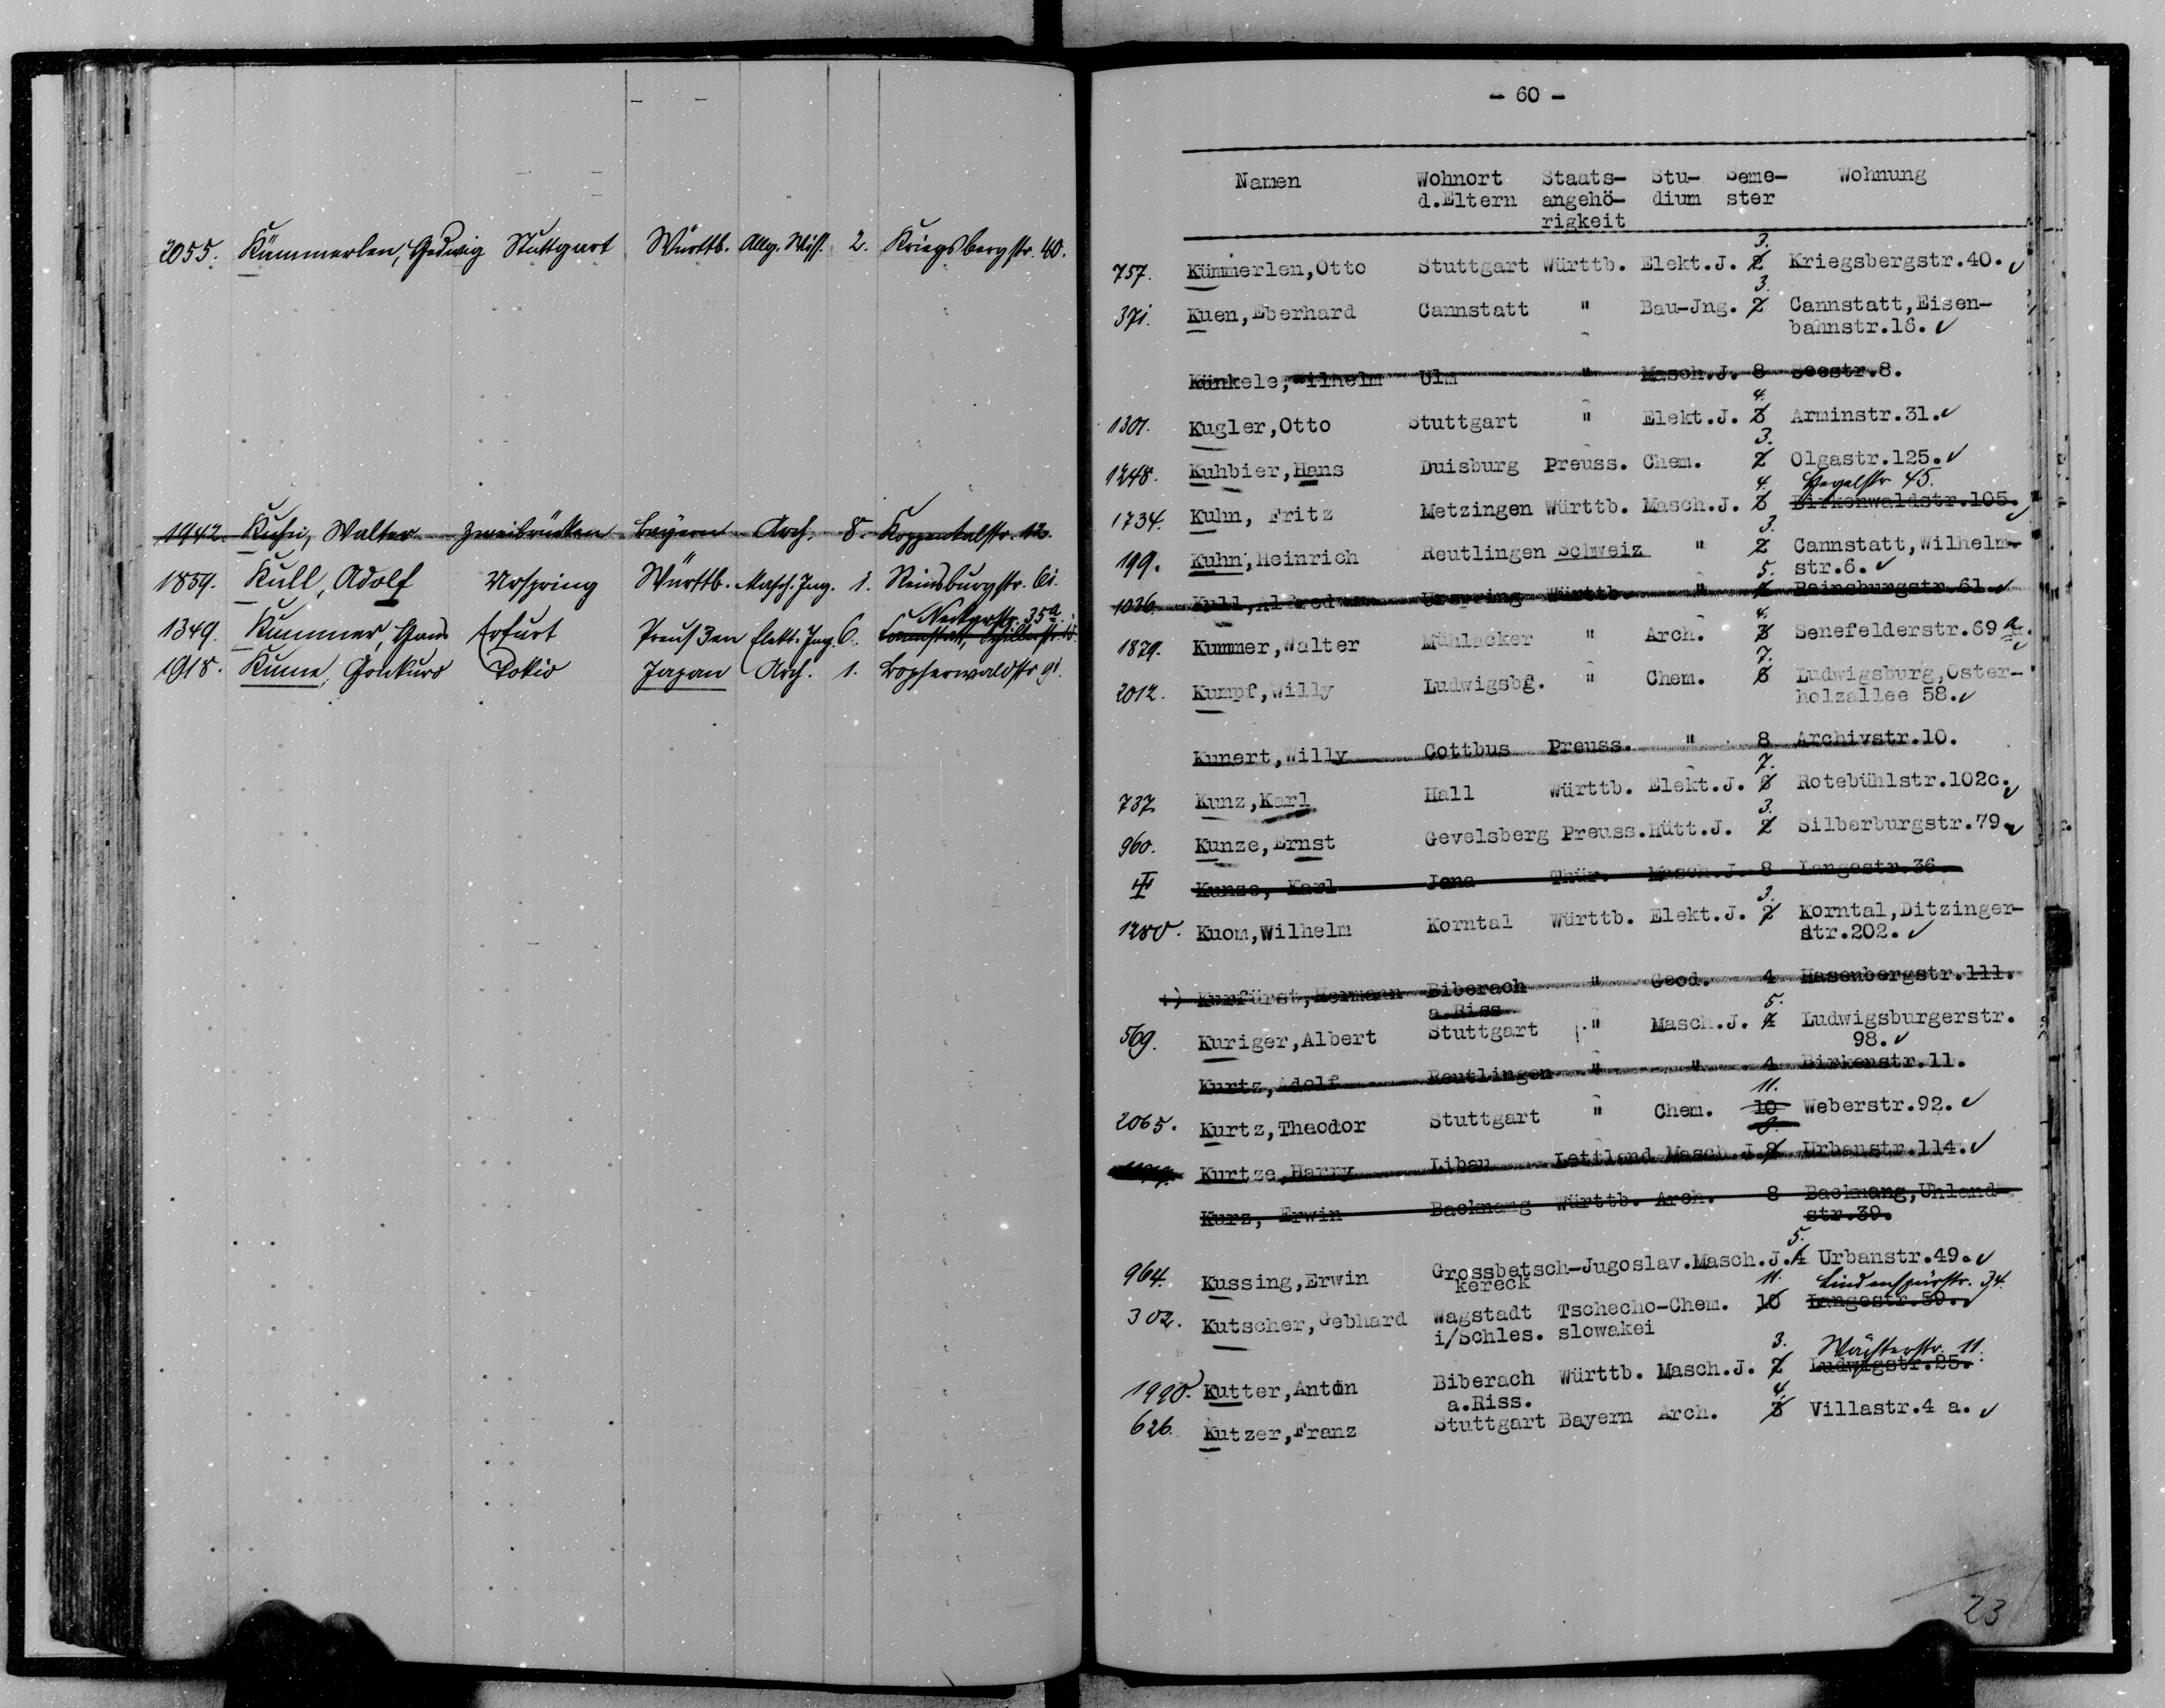 2055. Kümmerlen, Hedwig Stuttgart Württb. Allg. Wiss. 2. Kriegsbergstr. 40.
1942. Kuhn, Walter Zweibrücken Bayern Arch. 8. Koppentalstr. 12.
1859. Kull, Adolf Urspring Württb. Masch. Ing. 1. Reinsburgstr. 61.
Neckarstr. 35a.
1349. Kummer, Hans Erfurt Preußen Elekt. Ing. 6. Cannstatt, Schillerstr.
1918. Kume, Gonkuro Tokio Japan Arch. 1. Bopserwaldstr 91.
- 60 -
Namen Wohnort Staats- Stu- Seme- Wohnung
d.Eltern angehö- dium ster
rigkeit
3.
757. Kümmerlen,Otto Stuttgart Württb. Elekt.J. 2 Kriegsbergstr.40.
3.
371. Kuen,Eberhard Cannstatt " Bau-Jng. 2 Cannstatt,Eisen-
bahnstr.16.
Künkele,Wilhelm Ulm " Masch.J. 8 Seestr.8.
4.
1301. Kugler,Otto Stuttgart " Elekt.J. 3 Arminstr.31.
3.
1248. Kuhbier,Hans Duisburg Preuss. Chem. 2 Olgastr.125.
4. Hegelstr 45.
1734. Kuhn, Fritz Metzingen Württb. Masch.J. 3 Birkenwaldstr.105.
3.
199. Kuhn,Heinrich Reutlingen Schweiz " 2 Cannstatt,Wilhelm-
str.6.
5.
1036. Kull,Alfred Urspring Württb. " 4 Reinsburgstr.61
4.
1829. Kummer,Walter Mühlacker " Arch. 3 Senefelderstr.69 a.
7.
2012. Kumpf,Willy Ludwigsbg. " Chem. 6 Ludwigsburg,Oster-
holzallee 58.
Kunert,Willy Cottbus Preuss. " 8 Archivstr.10.
7.
737 Kunz,Karl Hall Württb. Elekt.J. 6 Rotebühlstr.102c.
3.
960. Kunze,Ernst Gevelsberg Preuss.Hütt.J. 2 Silberburgstr.79.
Kunze, Karl Jena Thür. Masch.J. 8 Langestr.36.
3.
1280. Kuom,Wilhelm Korntal Württb. Elekt.J. 2 Korntal,Ditzinger-
str.202.
+) Kurfürst,Hermann Biberach " Geod. 4 Hasenbergstr.111.
a.Riss
5.
569. Kuriger,Albert Stuttgart " Masch.J. 4 Ludwigsburgerstr.
98.
Kurtz,Adolf Reutlingen " " 4 Birkenstr.11.
11.
2065. Kurtz,Theodor Stuttgart " Chem. 10 Weberstr.92.
Kurtze,Harry Libau Lettland Masch.J. 8 Urbanstr.114.
Kurz, Erwin Backnang Württb. Arch. 8 Backnang,Uhland-
str.39.
5.
964. Kussing,Erwin Grossbetsch-Jugoslav.Masch.J.4 Urbanstr.49.
kereck
11. Lindenspürstr. 34.
302. Kutscher,Gebhard Wagstadt Tschecho-Chem. 10 Langestr.59.
i/Schles. slowakei
3. Wächterstr. 11.
1990. Kutter,Anton Biberach Württb. Masch.J. 2 Ludwigstr.25.
a.Riss.
4.
626. Kutzer,Franz Stuttgart Bayern Arch. 3 Villastr.4 a.
23